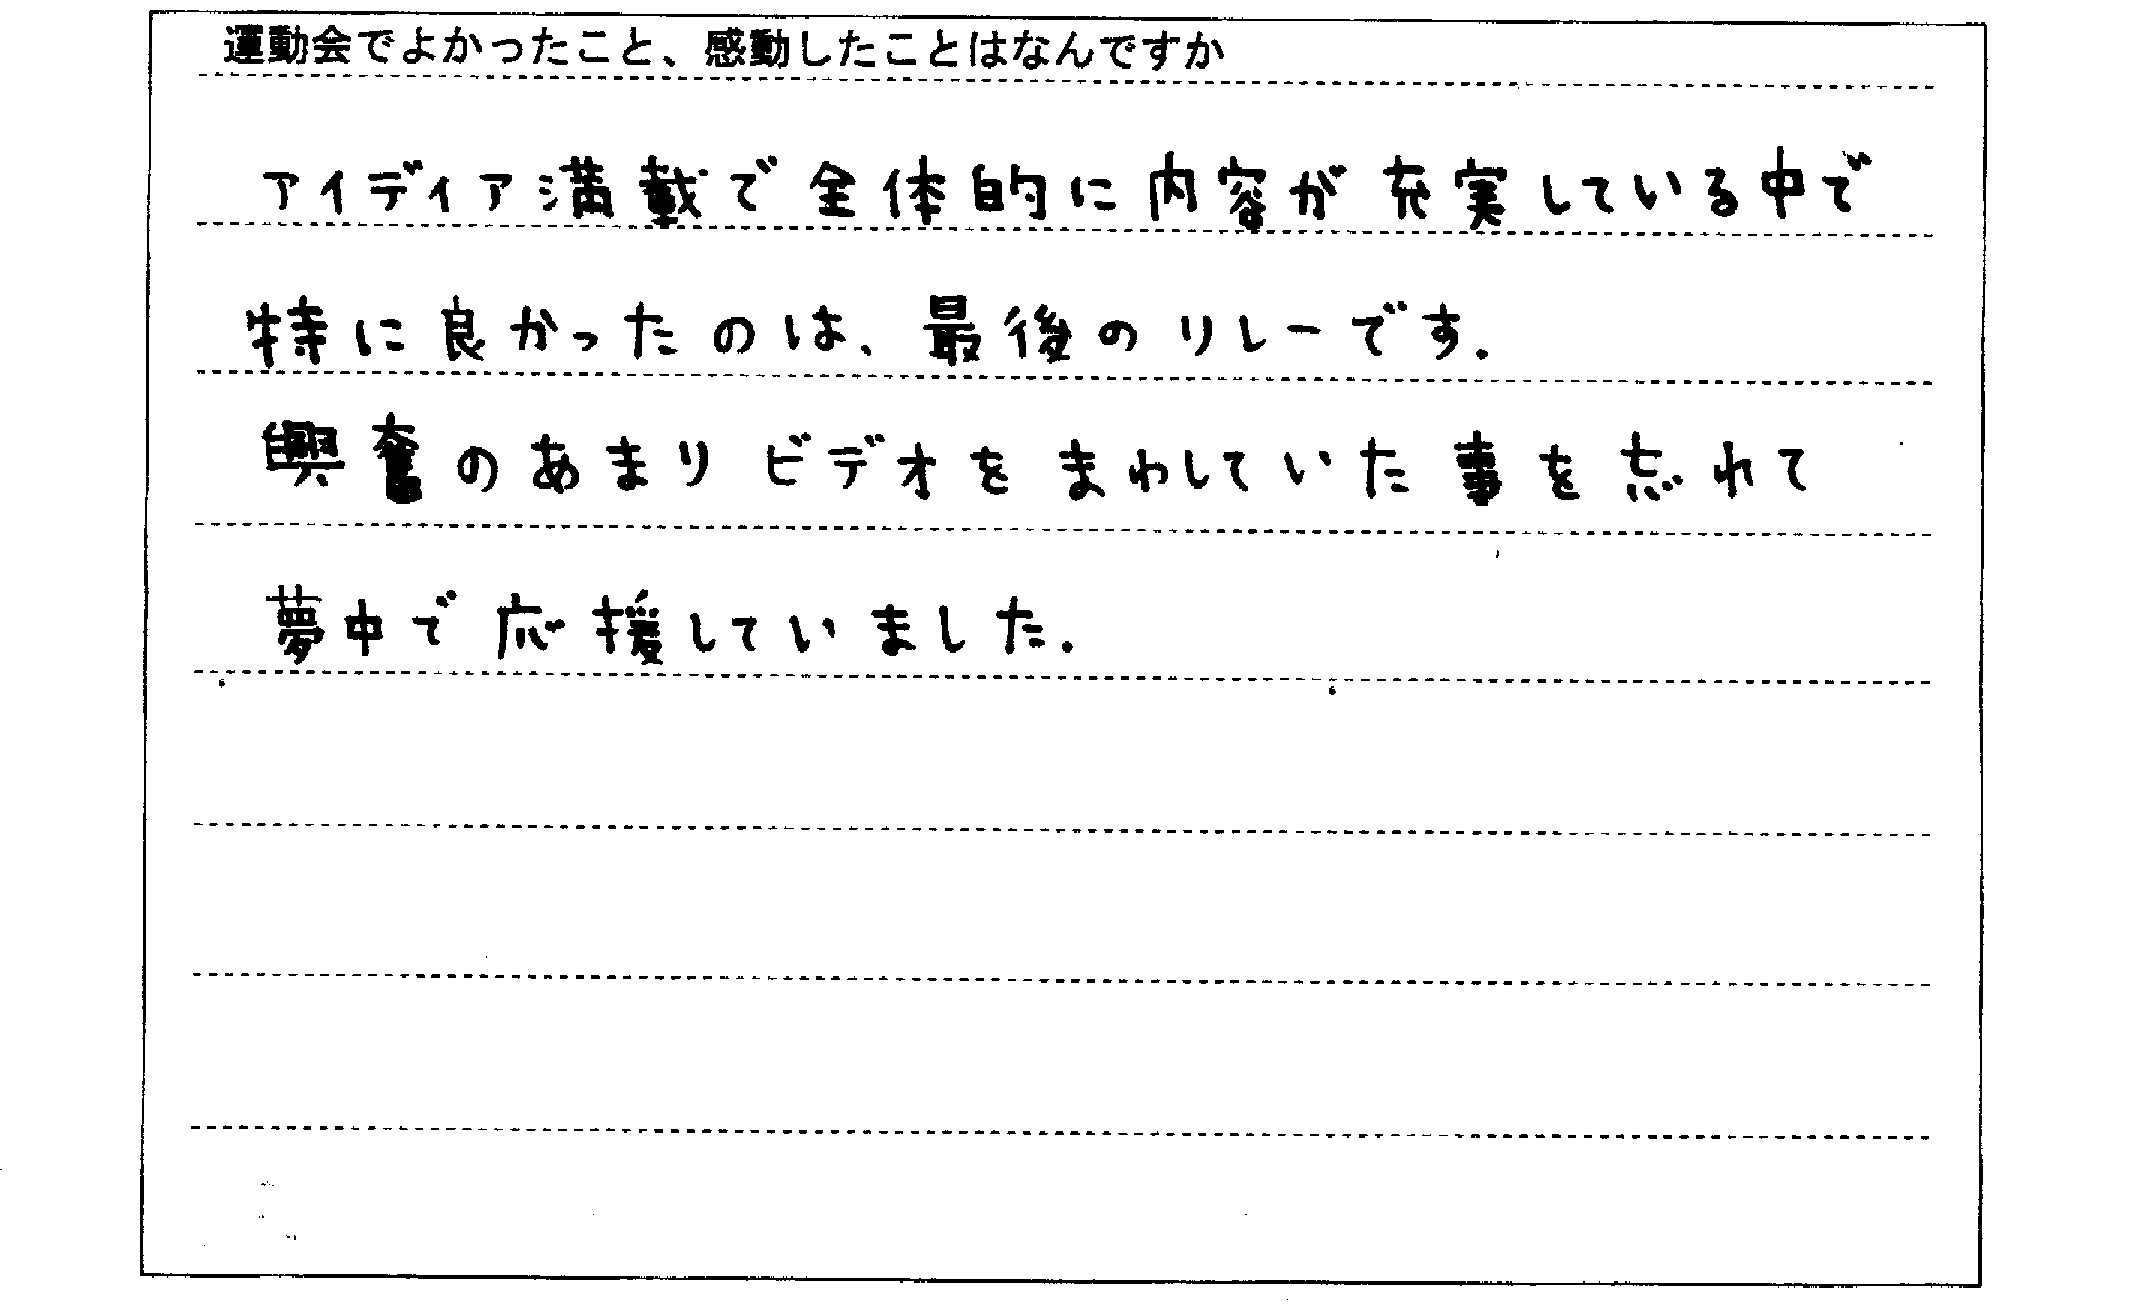 運動会でよかったこと、感動したことはなんですか
アイディア満載で全体的に内容が充実している中で
特に良かったのは、最後のリレーです.
興奮のあまりビデオをまわしていた事を忘れて
夢中で応援していました.